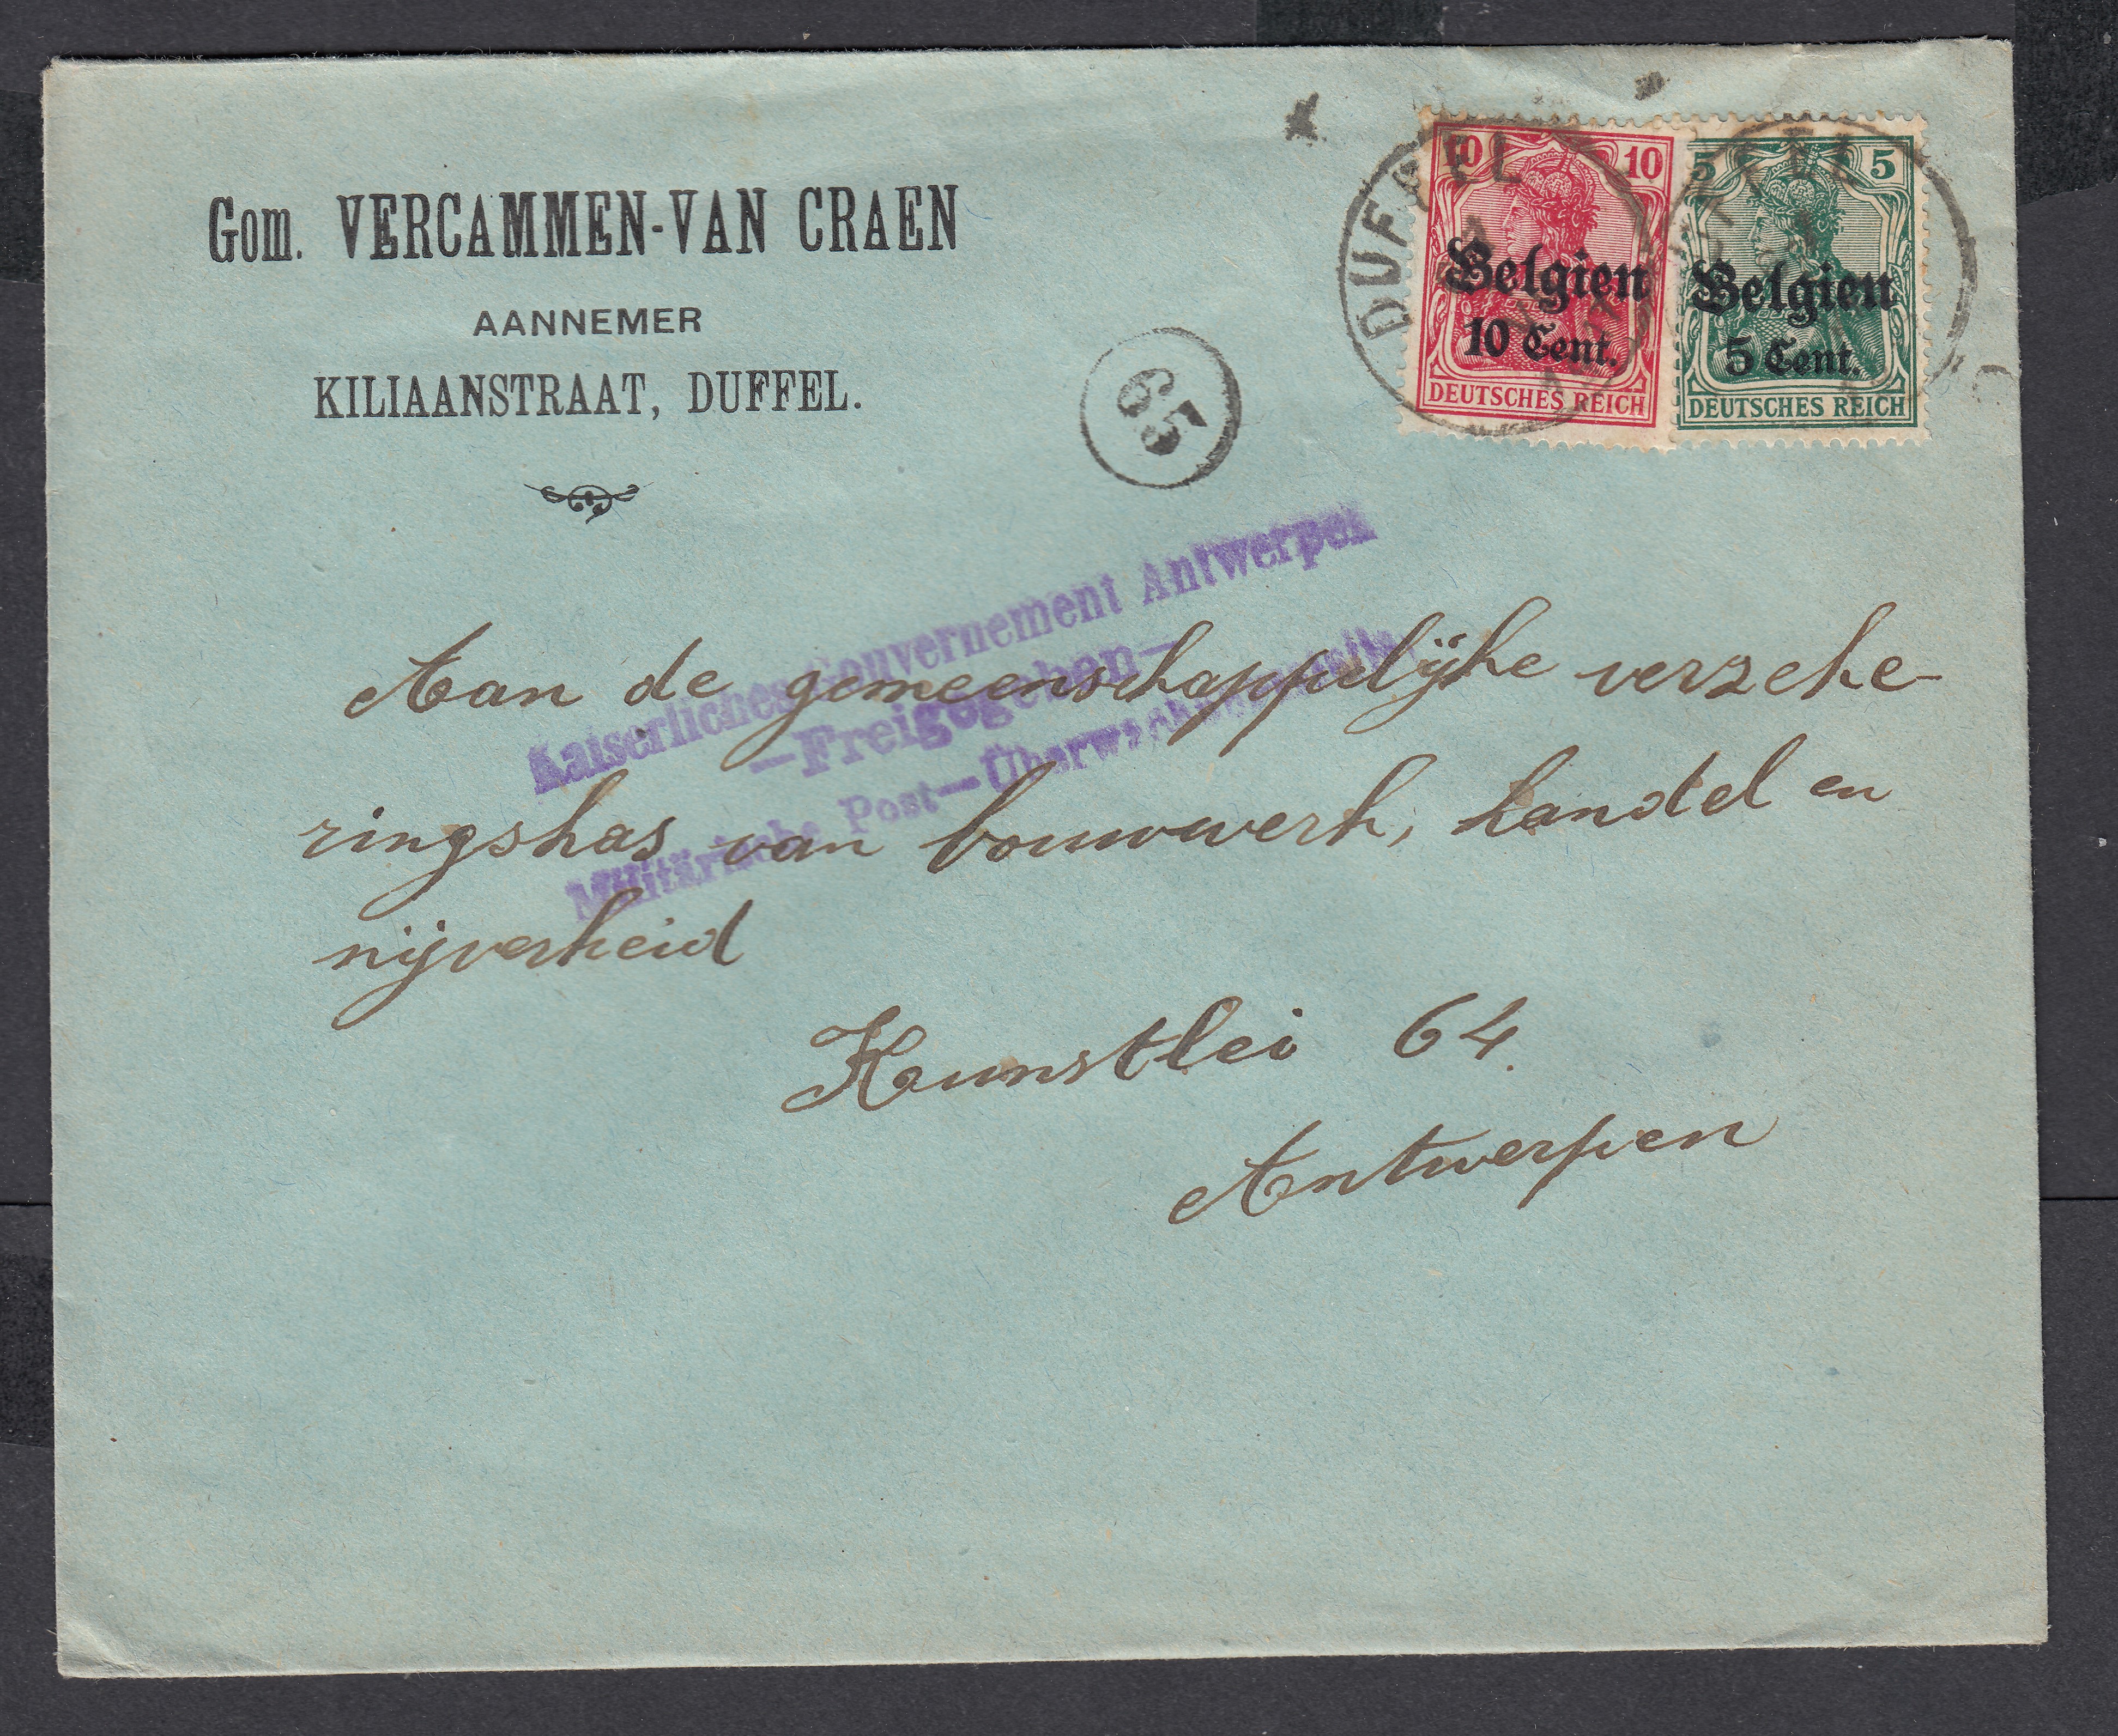 Gom. VERCAMMEN-VAN CRAEN
AANNEMER
KILIAANSTRAAT, DUFFEL.
65
DUFFEL
10 10
Belgien
10 Cent.
DEUTSCHES REICH
5 5
Belgien
5 Cent.
DEUTSCHES REICH
Kaiserliches Gouvernement Antwerpen
—Freigegeben—
Militärische Post—Überwachungsstelle
Aan de gemeenschappelijke verzeke-
ringskas van bouwwerk, handel en
nijverheid
Kunstlei 64.
Antwerpen